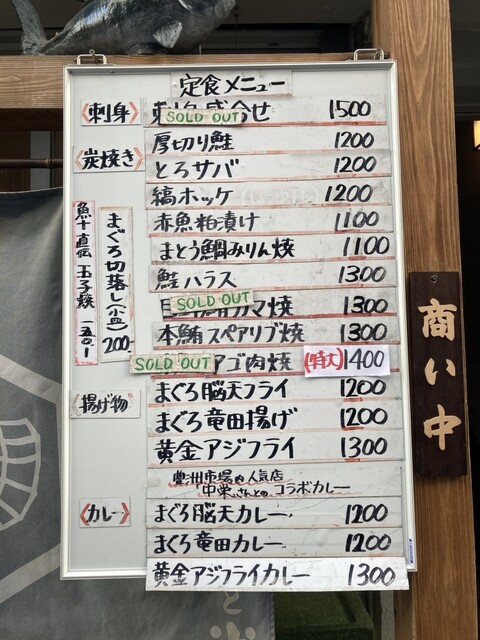 定食メニュー
《刺身》
刺身盛合せ 1500
SOLD OUT
《炭焼き》
厚切り鮭 1200
とろサバ 1200
縞ホッケ 1200
赤魚粕漬け 1100
まとう鯛みりん焼 1100
鮭ハラス 1300
カマ焼 1300
SOLD OUT
本鮪スペアリブ焼 1300
アゴ肉焼 (特大) 1400
SOLD OUT
まぐろ切落し(小皿) 200-
魚十直伝 玉子焼 一五〇.-
《揚げ物》
まぐろ脳天フライ 1200
まぐろ竜田揚げ 1200
黄金アジフライ 1300
豊洲市場の人気店
「中栄」さんとの コラボカレー
《カレー》
まぐろ脳天カレー 1200
まぐろ竜田カレー 1200
黄金アジフライカレー 1300
商い中